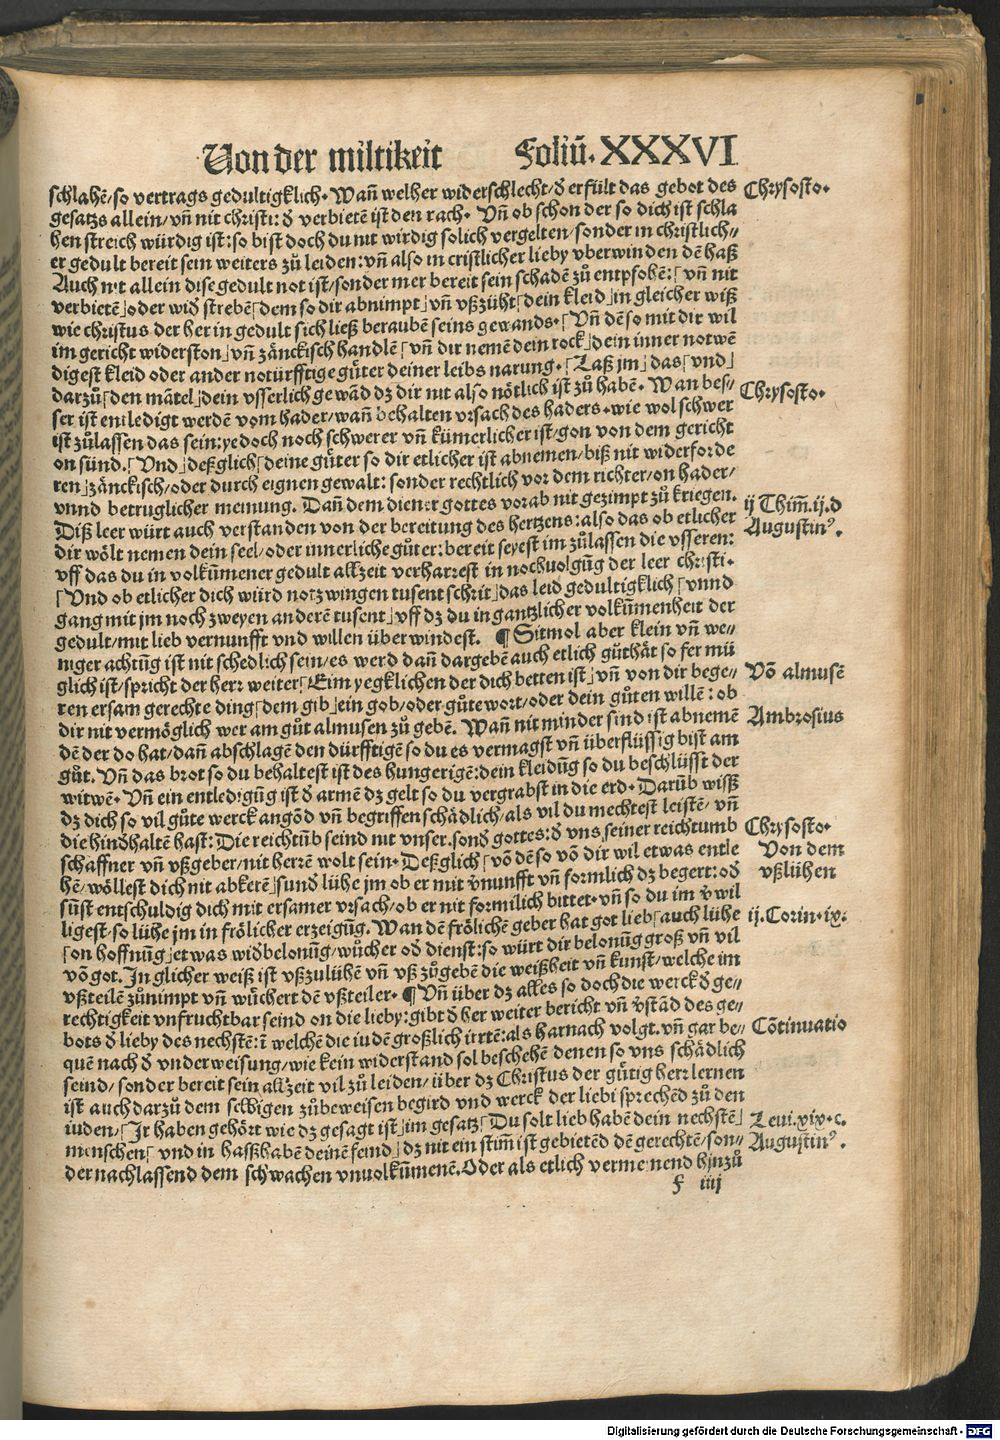 Von der miltikeit Foliū. XXXVI
schlahē/so vertrags gedultigklich. Wañ welher widerschlecht/ď erfült das gebot des
Chrysosto.
gesatzs allein/vñ nit christi: ď verbietē ist den rach. Vñ ob schon der so dich ist schla
hen streich würdig ist: so bist doch du nit wirdig solich vergelten/sonder in christlich⸗
er gedult bereit sein weiters zů leiden: vñ also in cristlicher lieby vberwinden dē haß
Auch nit allein dise gedult not ist/sonder mer bereit sein schadē zů entpfohē: ⌈vñ nit
verbietē⌋oder wiď strebē⌈dem so dir abnimpt⌋vñ vßzüht⌈dein kleid⌋in gleicher wiß
wie christus der her in gedult sich ließ berauben seins gewands. ⌈Vñ dē so mit dir wil
im gericht widerston⌋vñ zänckisch handlē⌈vñ dir nemē dem rock⌋dein inner notwē
digest kleid oder ander notürfftige gůter deiner leibs narung. ⌈Laß jm⌋das⌈vnd⌋
darzů⌈den mātel⌋dein vsserlich gewād dz dir nit also nötlich ist zů habē. Wan bes⸗
Chrysosto.
ser ist entledigt werdē vom hader/wañ behalten vrsach des haders. wie wol schwer
ist zůlassen das sein: yedoch noch schwerer vñ kümerlicher ist/gon von dem gericht
on sünd. ⌈Vnd⌋deßglich⌈deine gůter so dir etlicher ist abnemen/biß nit widerforde
ren⌋zänckisch/oder durch eignen gewalt: sonder rechtlich vor dem richter/on hader/
vnnd betruglicher meinung. Dañ dem diener gottes vorab nit gezimpt zů kriegen.
ij Thim̄. ij. d
Diß leer würt auch verstanden von der bereitung des hertzens: also das ob etlicher
Augustinꝰ.
dir wölt nemen dein seel/oder innerliche gůter: bereit seyest im zůlassen die vsseren:
vff das du in volkūmener gedult allzeit verharrest in nochuolgūg der leer christi.
⌈Vnd ob etlicher dich würd notzwingen tusent schrit⌋das leid gedultigklich⌈vnnd
gang mit jm noch zweyen anderē tusent⌋vff dz du in gantzlicher volkūmenheit der
gedult/mit lieb vernunfft vnd willen überwindest. ¶ Sitmol aber klein vñ we⸗
niger achtūg ist nit schedlich sein/es werd dañ dargebē auch etlich gůthät so fer mü
glich ist/spricht der herr weiter⌈Eim yegklichen der dich betten ist⌋vñ von dir bege⸗
Vō almusē
ren ersam gerechte ding⌈dem gib⌋ein gob/oder gůte wort/oder dein gůten willē: ob
dir nit vermöglich wer am gůt almusen zů gebē. Wañ nit minder sind ist abnemē
Ambrosius
dē der do hat/dañ abschlagē den dürfftigē so du es vermagst vñ überflüssig bist am
gůt. Vñ das brot so du behaltest ist des hungerigē: dein kleidūg so du beschlüsst der
witwē. Vñ ein entledigūg ist ď armē dz gelt so du vergrabst in die erd. Darūb wisß
dz dich so vil gůte werck angōd vñ begriffen schädlich/als vil du mechtest leistē/vñ
die hindhaltē hast: Die reichtūb seind nit vnser. sonď gottes: ď vns seiner reichtumb
Chrysosto.
schaffner vñ vßgeber/nit herrē wolt sein. Deßglich⌈vō dē so vō dir wil etwas entle
Von dem
hē/wöllest dich nit abkerē⌋sund lühe jm ob er mit v̓nunfft vñ formlich dz begert: oď
vßlühen
sūst entschuldig dich mit ersamer vrsach/ob er nit formlich bittet. vñ so du im v̓wil
ligest/so lühe jm in frölicher erzeigūg. Wan dē frölichē geber hat got lieb⌈auch lühe
ij. Corin. ix.
⌈on hoffnūg⌋et was widbelonūg/wůcher oď dienst: so würt dir belonūg groß vñ vil
vō got. In glicher weiß ist vßzulühē vñ vß zůgebē die weißheit vñ kunst/welche im
vßteilē zůnimpt vñ wůchert dē vßteiler. ¶ Vñ über dz alles so doch die werck ď ge⸗
rechtigkeit vnfruchtbar seind on die lieby: gibt ď her weiter bericht vñ v̓stād des ge⸗
bots ď lieby des nechstē: ī welchē die iudē großlich irrtē: als harnach volgt. vñ gar be⸗
Cōtinuatio
quē nach ď vnderweisung/wie kein widerstand sol beschehē denen so vns schädlich
seind/sonder bereit sein allzeit vil zů leiden/über dz Christus der gůtig herr lernen
ist auch darzů dem selbigen zůbeweisen begird vnd werck der liebi sprechēd zů den
iuden/⌈Ir haben gehört wie dz gesagt ist⌋im gesatz⌈Du solt lieb habē dein nechstē⌋
Leui. xix. c.
menschen⌈vnd in hasß habē deinē feind⌋dz nit ein stim̄ ist gebietēd dē gerechtē/son⸗
Augustinꝰ.
der nachlassend dem schwachen vnuolkūmenē. Oder als etlich vermeinend hinzů
f iiij
Digitalisierung gefördert durch die Deutsche Forschungsgemeinschaft - DFG